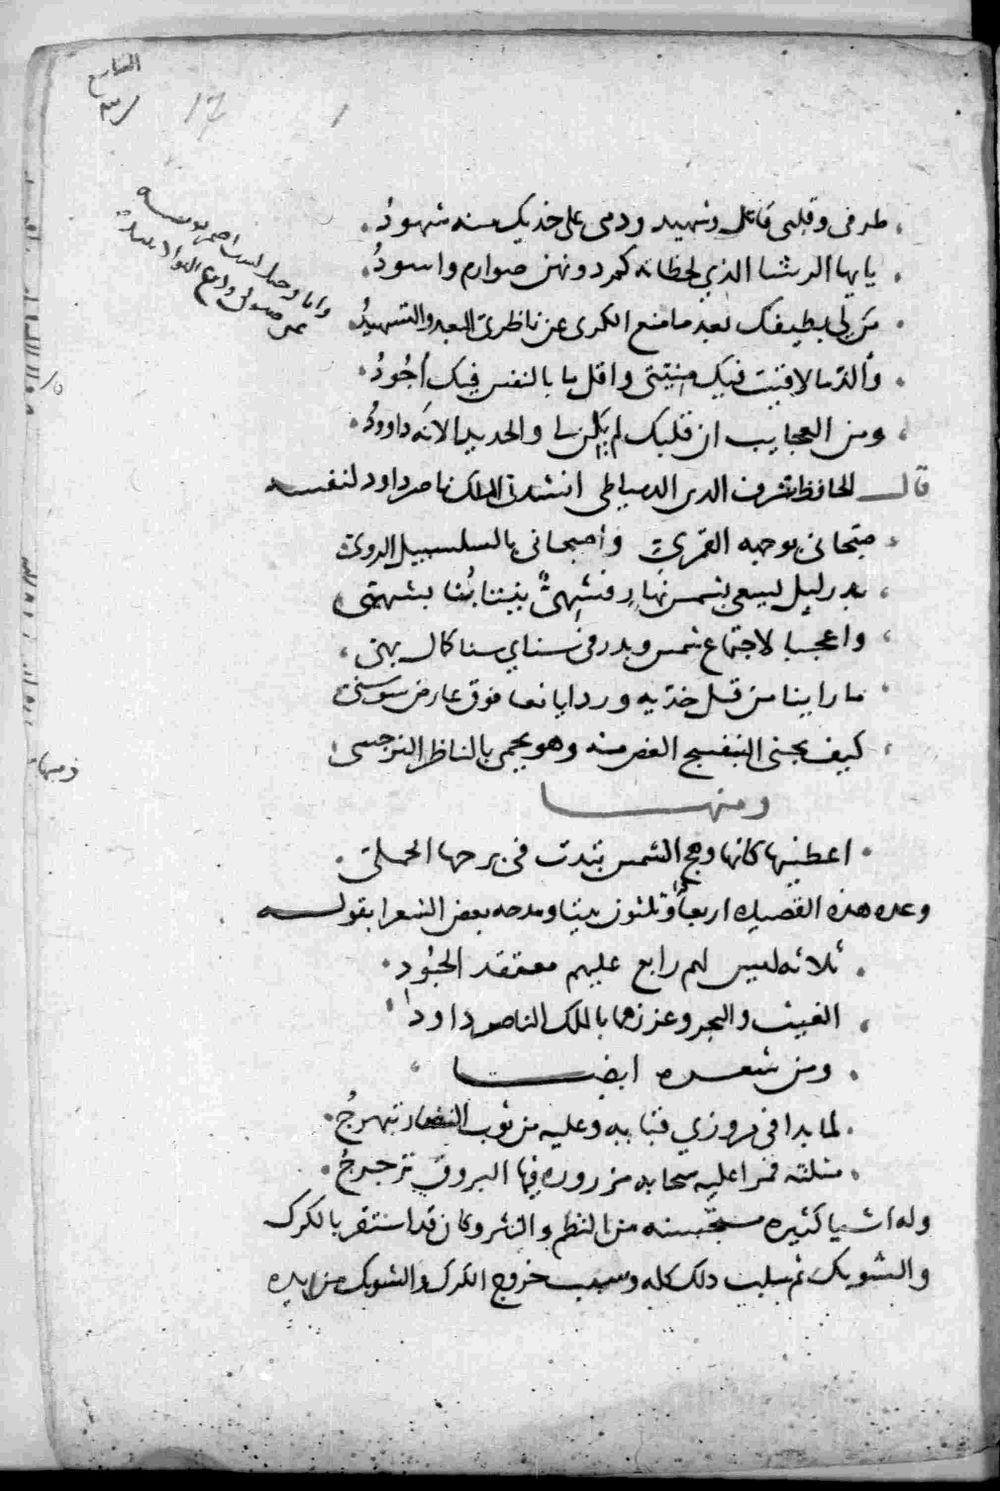 السابع
١٣
17
طرفي وقلبي قاتل وشهيد ودمي على خديك منه شهودُ
يايها الرشا الذي لحظاته كم دونهن صوارم واسودُ
من لي بطيفك بعد ما منع الكرى عن ناظري البعد والتسهيدُ
وألذ ما لاقيت فيك منيتي واقل ما بالنفس فيك أجُودُ
ومن العجايب ان قلبك لم يلن لي والحديد الانه داوودُ
قال الحافظ شرف الدين الدمياطي انشدنا الملك ناصر داود لنفسه
صبحاني بوجهه القمري وأصبحاني بالسلسبيل الروي
بدر ليل يسعى بشمس نهار فشهيٌ بيتنا بشهي
واعجبا لاجتماع شمس وبدر في سناي سنا كال بهي
ما راينا من قبل خديه وردا يانعا فوق عارض سوسني
كيف يجنى البنفسج الغض منه وهو يحمى بالناظر النرجسى
ومنها
اعطنيها كانها وهج الشمس تبدت في برجها الحملي
وعده هذه القصيده اربعاً وثلثون بيتا ومدحه بعض الشعرا بقوله
ثلاثه ليس لهم رابع عليهم معتمد الجُود
الغيث والبحر وعززهما بالملك الناصر داود
ومن شعره ايضا
لما بدا في مروزي قبابه وعليه من ثوب النضار تبهرجُ
مثلته قمرا عليه سحابه مزروره فيها البروق ترجرجُ
وله اشيا كثيره مستحسنه من النظم والنثر وكان قد استقر بالكرك
والشوبك ثم سلبت ذلك كله وسبب خروج الكرك والشوبك من يده